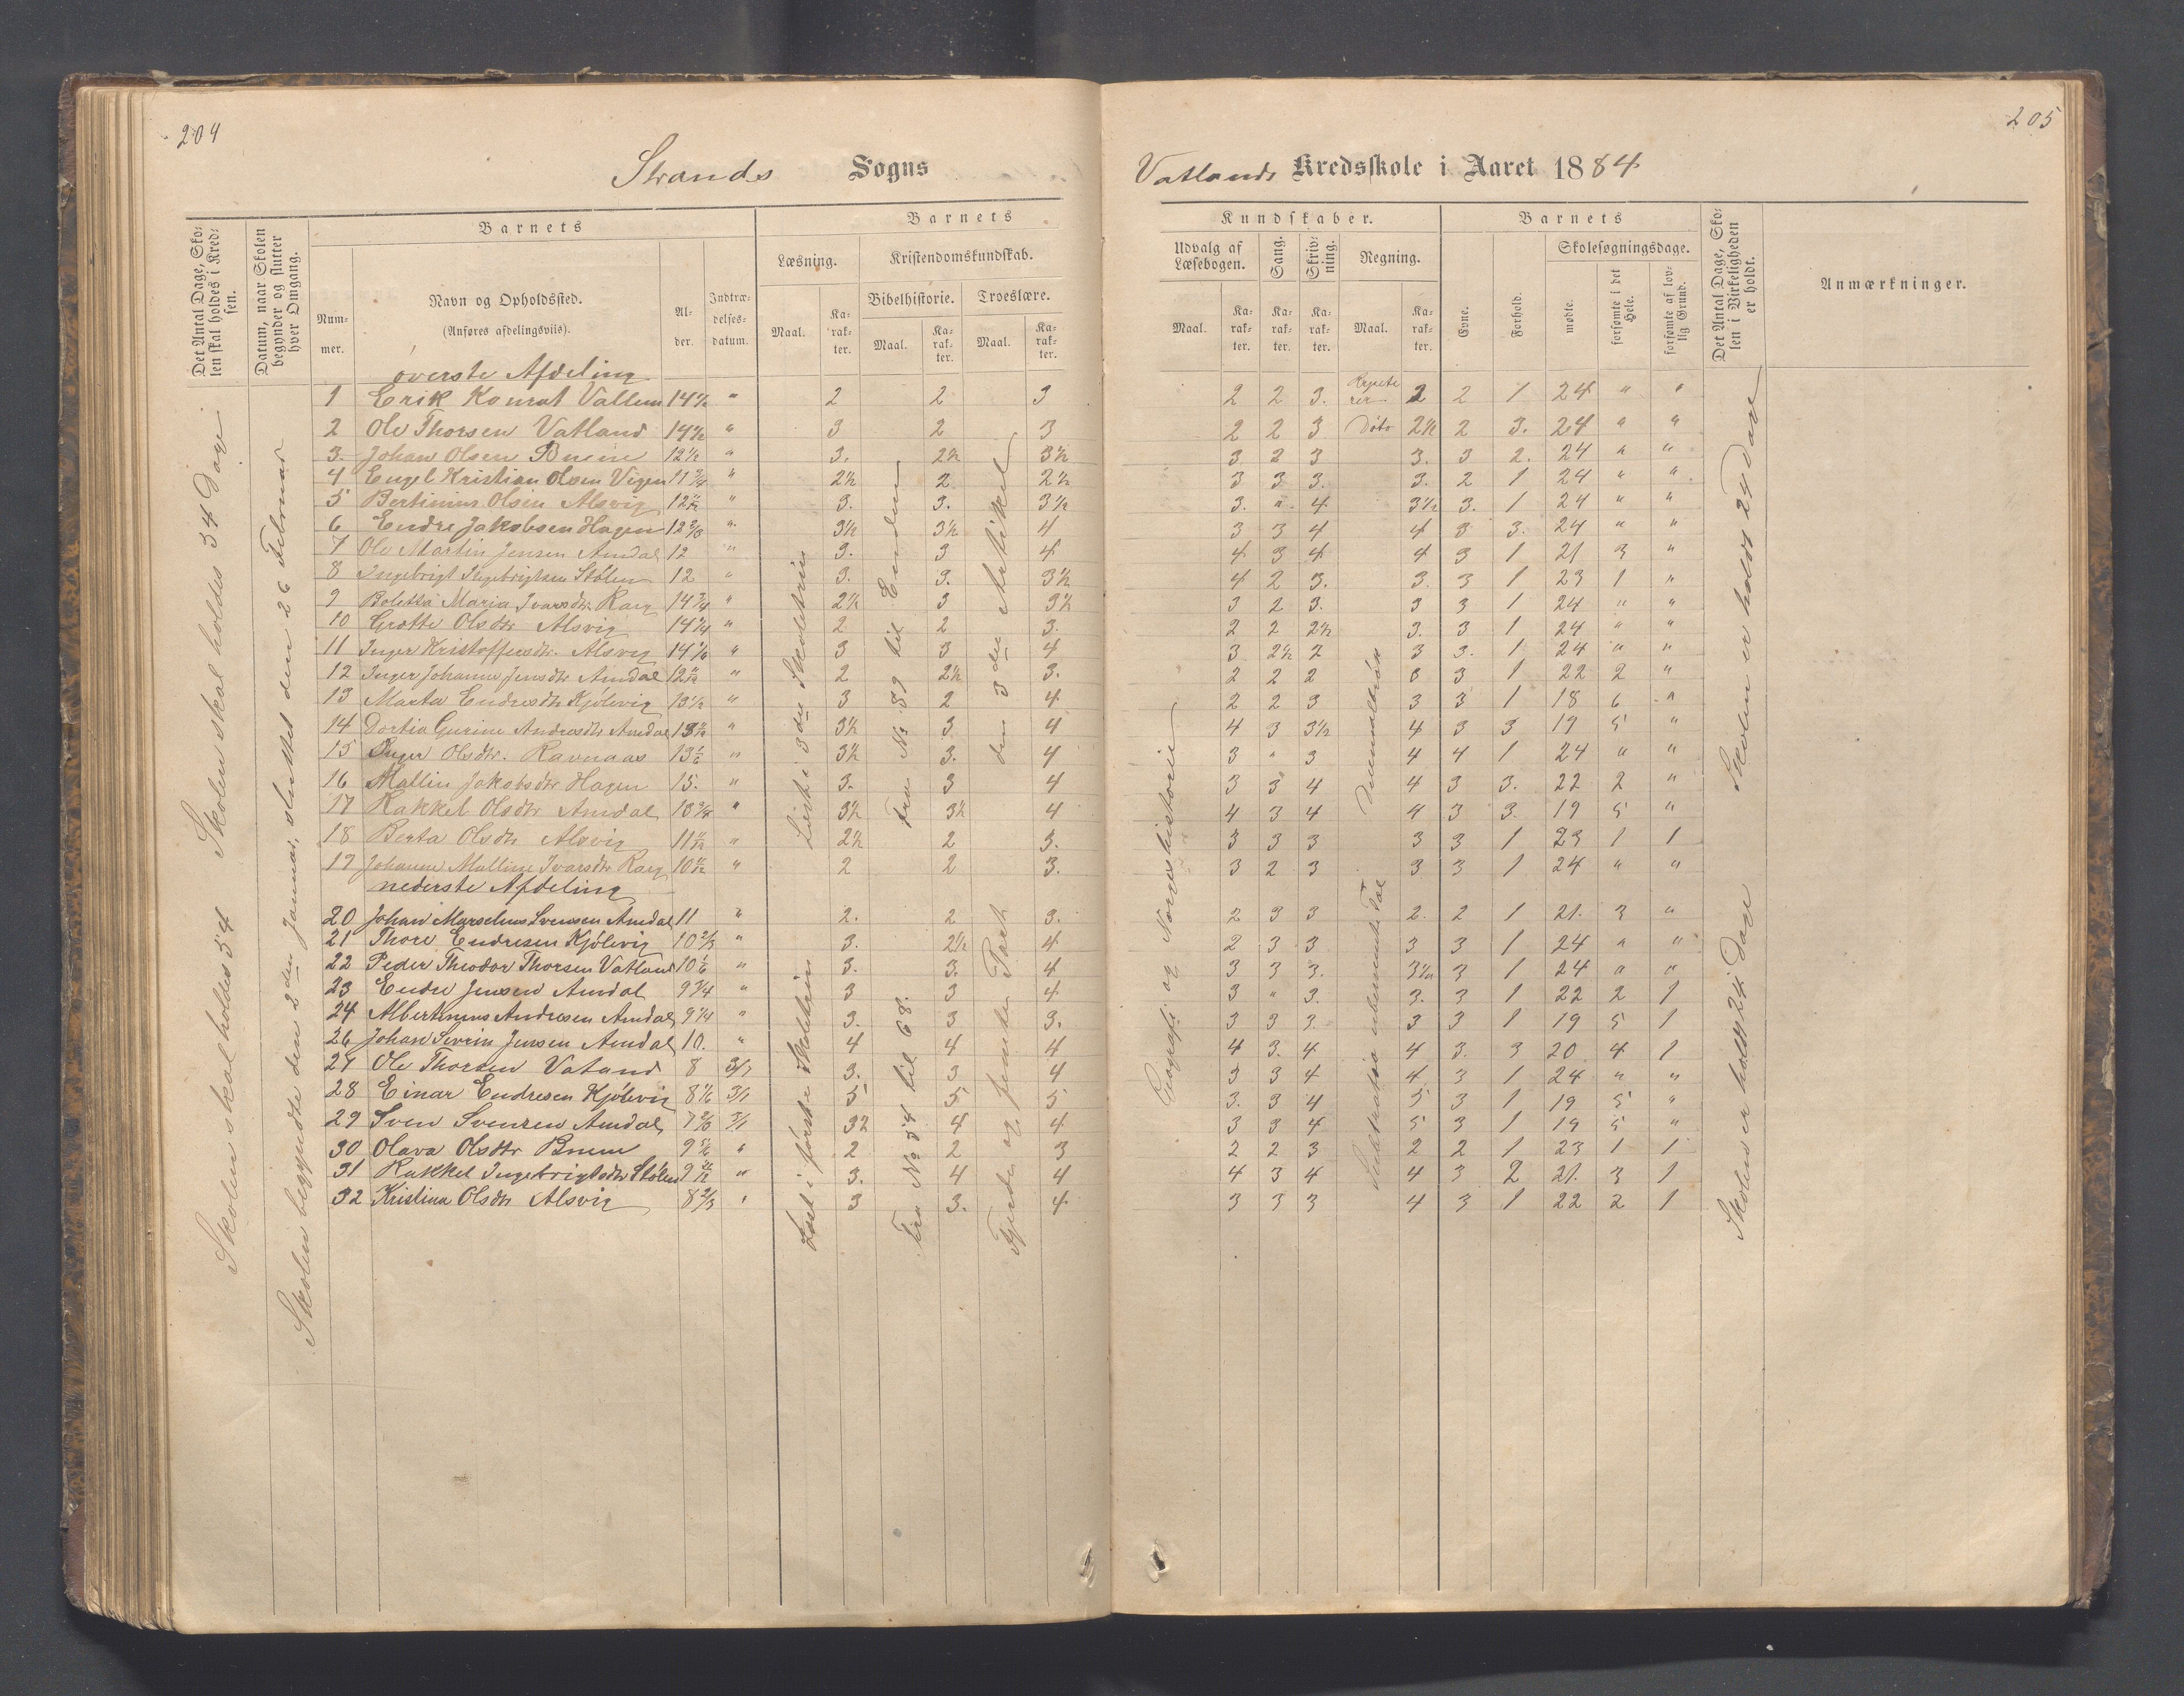 204
205
Strands Sogns
Vatlands Kredsskole i Aaret 1884.
Det Antal Dage, Skolen skal holdes i Kredsen.
Datum, naar Skolen begynder og slutter hver Omgang.
Barnets
Nummer.
Navn og Opholdssted.
(Anføres afdelingsviis).
Alder.
Indtrædelsesdatum.
Barnets
Læsning.
Kristendomskundskab.
Bibelhistorie.
Troeslære.
Maal.
Karakter.
Maal.
Karakter.
Maal.
Karakter.
Kundskaber.
Udvalg af Læsebogen.
Sang.
Skrivning.
Regning.
Maal.
Karakter.
Karakter.
Karakter.
Maal.
Karakter.
Barnets
Evne.
Forhold.
Skolesøgningsdage.
mødte.
forsømte i det Hele.
forsømte af lovlig Grund.
Det Antal Dage, Skolen i Virkeligheden er holdt.
Anmærkninger.
Skolen skal holdes 34 Dage
Skolen skal holdes 34
Skolen begyndte den 2den Januar, sluttet den 26 Februar
øverste Afdeling
1 Erik Konrat Vallem " 2 2 3 2 2 3. 2 2 1 24 " "
2 Ole Thorsen Vatland 14½ " 3 2 3 2 2 3 Dito 2½ 2 3. 24 " "
3. Johan Olsen 12½ " 3. 2½ 3½ 3 2 3 3. 3 2. 24 " "
4 Engel Kristian Olsen Vigen 11¾ " 2½ 2 2½ 3 3 3. 3. 2 1 24 " "
5 Bertinius Olsen Alsvig " 3. 3. 3½ 3. " 4 3½ 3. 1 24 " "
6 Endre Jakobsen Hagen " 3½ 3½ 4 3 3 4 4 3 3. 24 " "
7 Ole Martin Jensen Amdal 12 " 3. 3 4 4 3 4 4 3 1 21 3 "
8 Ingebrigt Ingebrigtsen Stølen 12 " 3. 3. 3½ 4 2 3. 3. 3 1 23 1 "
9 Boletta Maria Ivarsdtr. " 2½ 3 3½ 3 2 3. 3 3 1 24 " "
10 Grette Olsdtr Alsvig 14¼ " 2 2 3. 2 2 2½ 3. 3 1 24 " "
11 Inger Kristoffersdtr. Alsvig " 3 3 4 3 2½ 2 3 3. 1 24 " "
12 Inger Johanne Jensdtr Amdal " 2 2½ 3. 2 2 2 3 3 1 22 2 "
13 Marta Endresdtr Kjölevig 13½ " 3 2 4 2 2 3 3 3 1 18 6 "
14 Dortia Gurine Andresdtr Amdal " 3½ 3 4 4 3 3½ 4 3 3 19 5 "
15 Inger Olsdtr. Ravnaas " 3½ 3. 4 3 " 3 4 4 1 24 " "
16 Mallin Jakobsdtr Hagen 15. " 3. 3 4 3 3 4 4 3 3. 22 2 "
17 Rakkel Olsdtr Amdal 13¾ " 3½ 3½ 4 4 3 4 4 3 3. 19 5 "
18 Berta Olsdtr Alsvig " 2½ 2 3. 3 3 3 3 3 1 23 1 1
19 Johanne Malline Ivarsdtr " 2 2 3. 3 2 3 3 3 1 24 " "
nederste Afdeling
20 Johan Marselius Svensen Amdal 11 " 2. 2 3. 2 3 3 2. 2 1 21. 3 "
21 Thore Endresen Kjölevig 10⅔ " 3. 2½ 4 2 3 3 3 3 1 24 " "
22 Peder Theodor Thorsen Vatland " 3. 3. 4 3 3 3. 3½ 3 1 24 " "
23 Endre Jensen Amdal 9¾ " 3 3 4 3 " 3. 3. 3 1 22 2 1
24 Albertinius Andresen Amdal 9¼ " 3. 3 3. 3 3 3 3 3 1 19 5 1
26 Johan Severin Jensen Amdal 10. " 4 4 4 4 3. 4 4 3. 3 20 4 1
27 Ole Thorsen Vatand 8 3/1 3. 3 4 3 3 4 4 3 1 24 " "
28 Einar Endresen Kjölevig 3/1 5 5 5 3. 3 4 5 3 1 19 5 "
29 Sven Svensen Amdal 3/1 3½ 4 4 3 3 4 5 3 1 19 5 "
30 Olava Olsdtr " 2 2 3 2 2 3 2 2 1 23 1 1
31 Rakkel Ingebrigtsdtr Stølen " 3. 4 4 4 3 4 4 3 2 21. 3 1
32 Kristina Olsdtr Alsvig 8⅔ " 3 3. 4 3 3 3 4 3 1 22 2 1
Læst i 3die Skoletrin
Fra No 39 til Enden
den 3die Artikel
Læst i første Skoletrin
Fra No 54 til 68.
Fjerde og femte Part
Geografi og Norges historie
Skolen er holdt 24 Dage
Skolen er holdt 24 Dage